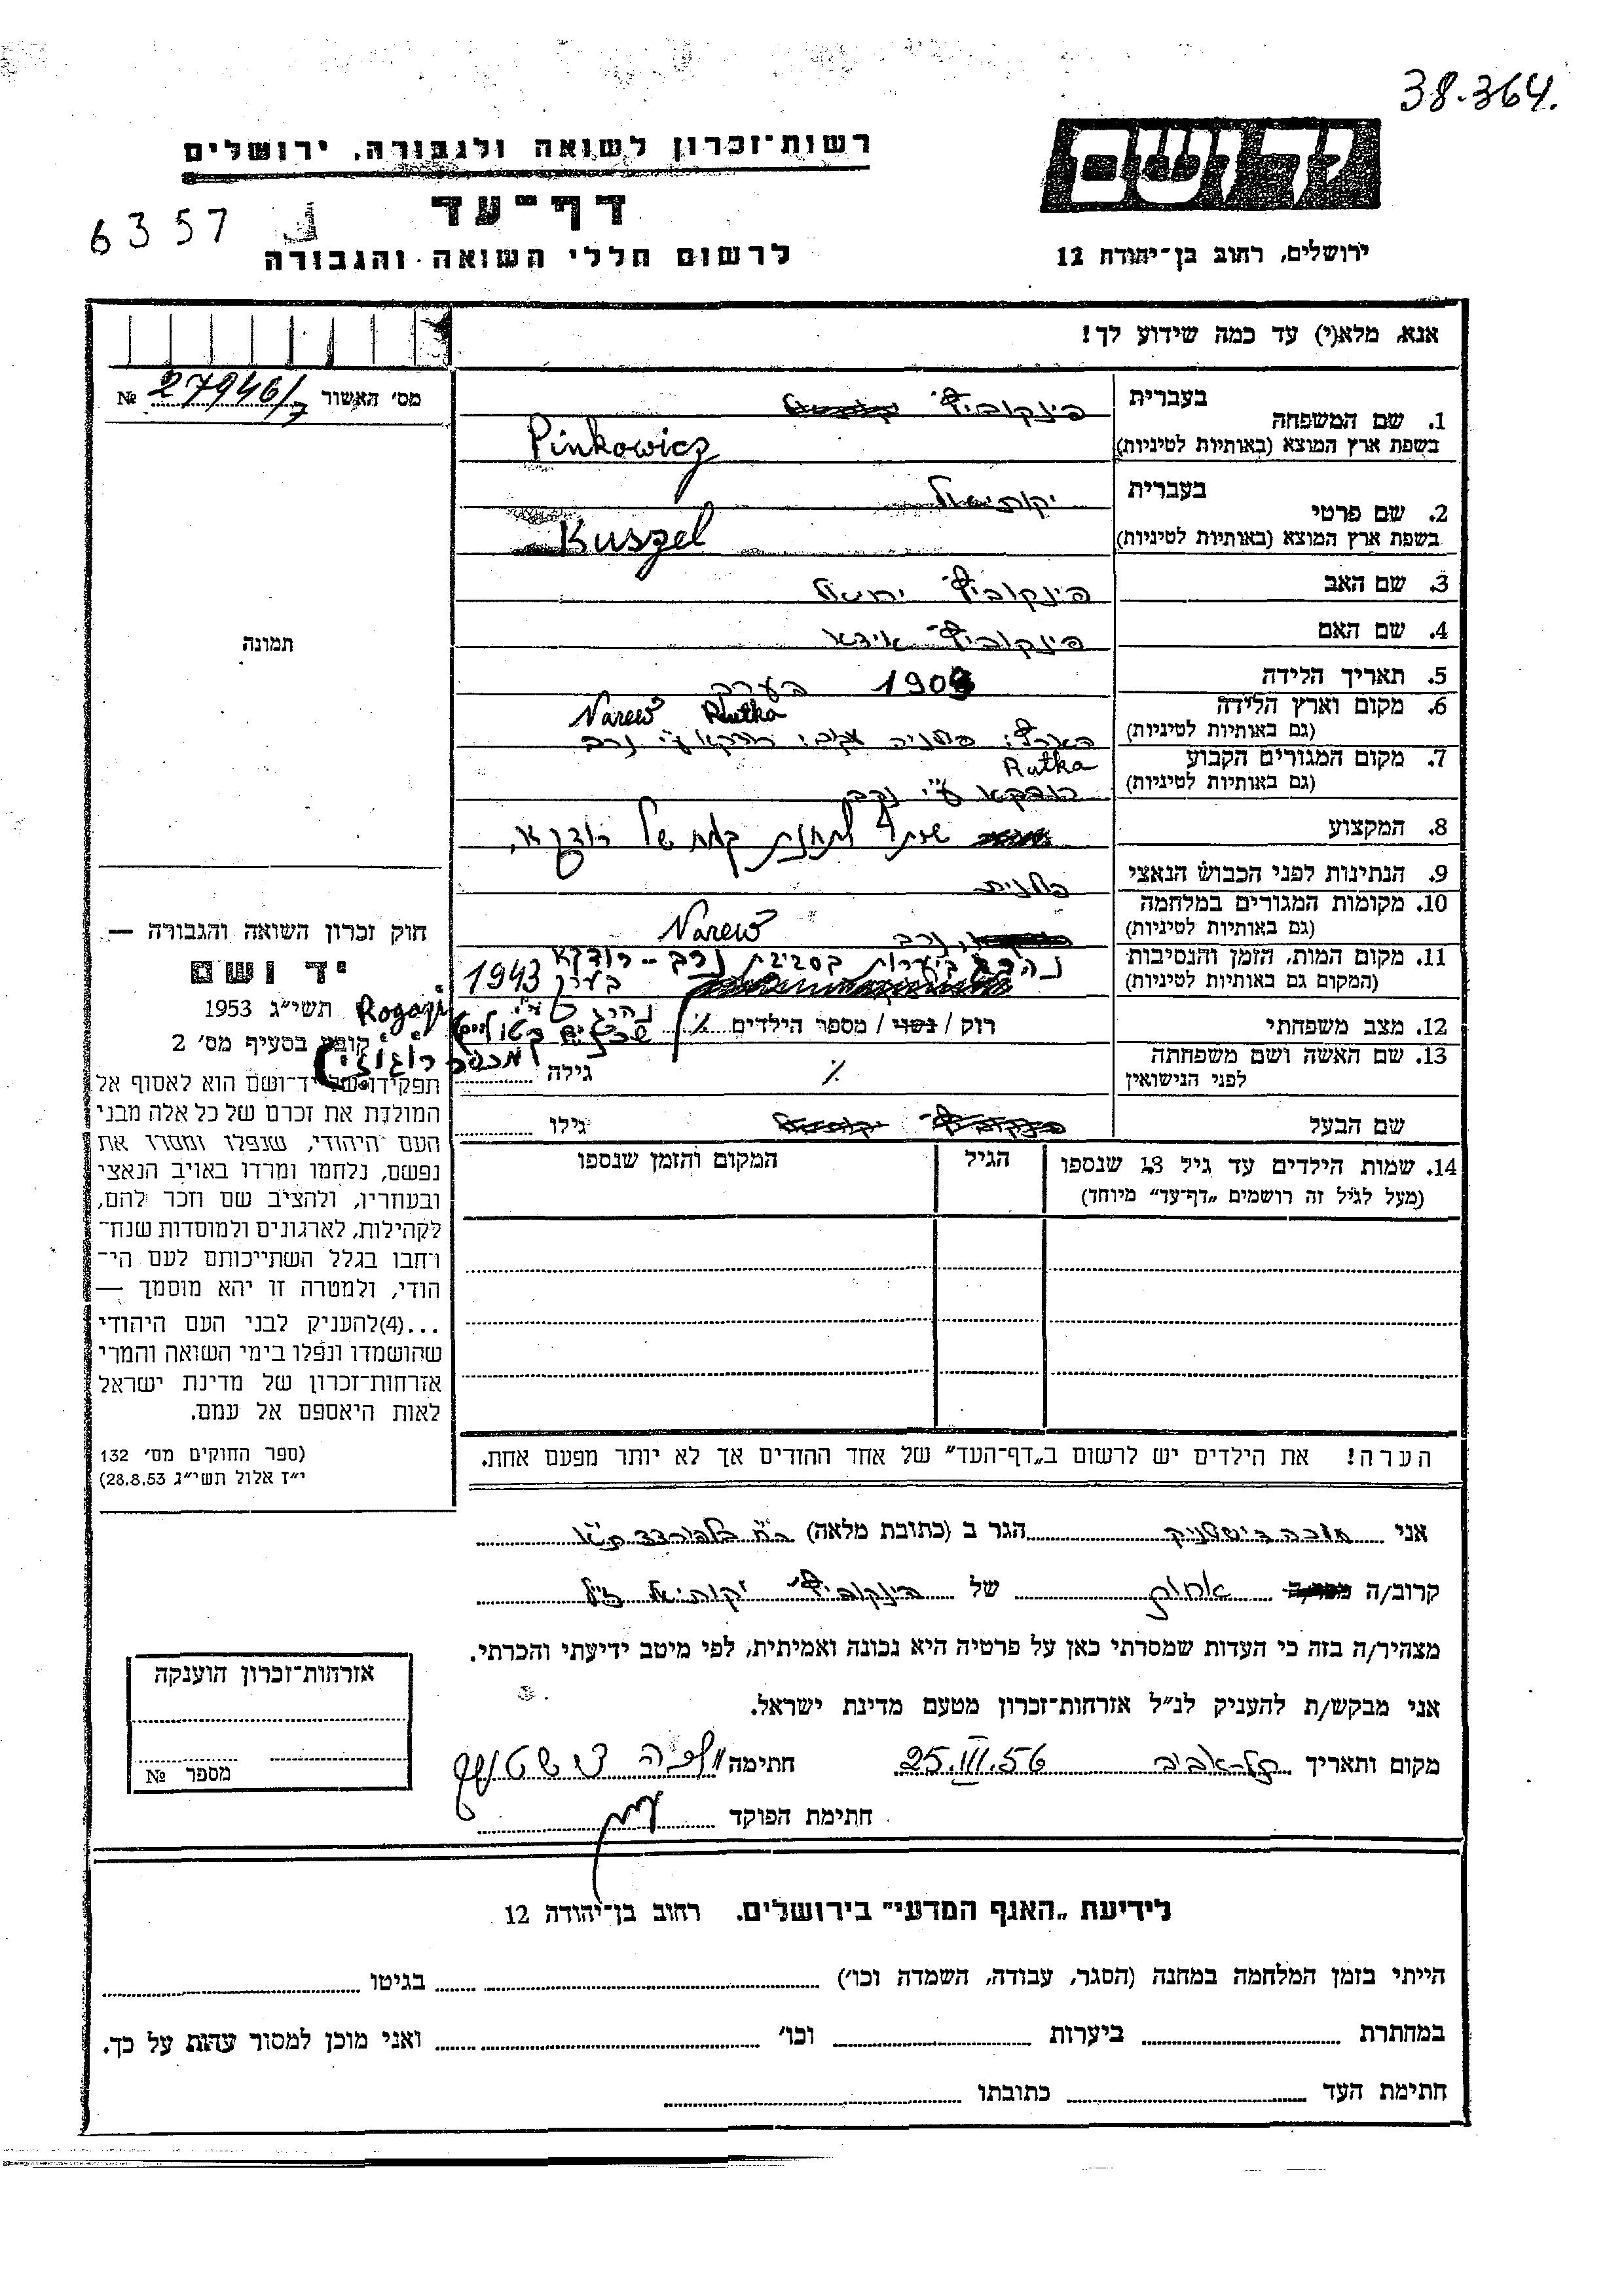 38.364.
יד ושם
רשות־זכרון לשואה ולגבורה, ירושלים
דף־עד
6357
לרשום חללי השואה והגבורה
ירושלים, רחוב בן־יהודה 12
אנא, מלא(י) עד כמה שידוע לך!
מס׳ האשור 27946/7 №
1. שם המשפחה
בעברית פינקוביץ
בשפת ארץ המוצא (באותיות לטיניות) Pinkowicz
2. שם פרטי
בעברית יקותיאל
בשפת ארץ המוצא (באותיות לטיניות) Kuszel
3. שם האב פינקוביץ
4. שם האם פינקוביץ אידא
5. תאריך הלידה בערך
6. מקום וארץ הלידה
(גם באותיות לטיניות) Narew Rutka
נרב
7. מקום המגורים הקבוע
(גם באותיות לטיניות) Rutka
רודקא ע״י נרב
8. המקצוע שותף לתחנת קמח של רודקא,
9. הנתינות לפני הכבוש הנאצי פולנית
10. מקומות המגורים במלחמה
(גם באותיות לטיניות) Narew
נרב
11. מקום המות, הזמן והנסיבות
(המקום גם באותיות לטיניות)
נהרג ביערות בסביבת נרב – רודקא
בערך 1943
נהרג ע״י
Rogozi
12. מצב משפחתי רוק / נשוי / מספר הילדים ٪
13. שם האשה ושם משפחתה
לפני הנישואין ٪ גילה
שם הבעל גילו
14. שמות הילדים עד גיל 13 שנספו
(מעל לגיל זה רושמים „דף־עד״ מיוחד)
הגיל
המקום והזמן שנספו
תמונה
חוק זכרון השואה והגבורה —
יד ושם
תשי״ג 1953
קובע בסעיף מס׳ 2
תפקידו של יד־ושם הוא לאסוף אל
המולדת את זכרם של כל אלה מבני
העם היהודי, שנפלו ומסרו את
נפשם, נלחמו ומרדו באויב הנאצי
ובעוזריו, ולהציב שם וזכר להם,
לקהילות, לארגונים ולמוסדות שנח־
רחבו בגלל השתייכותם לעם הי־
הודי, ולמטרה זו יהא מוסמך —
...(4)להעניק לבני העם היהודי
שהושמדו ונפלו בימי השואה והמרי
אזרחות־זכרון של מדינת ישראל
לאות היאספם אל עמם.
(ספר החוקים מס׳ 132
י״ז אלול תשי״ג 28.8.53)
הערה! את הילדים יש לרשום ב„דף־העד״ של אחד ההורים אך לא יותר מפעם אחת.
אני הגר ב (כתובת מלאה)
קרוב/ה אחות של פינקוביץ יקותיאל ז״ל
מצהיר/ה בזה כי העדות שמסרתי כאן על פרטיה היא נכונה ואמיתית, לפי מיטב ידיעתי והכרתי.
אני מבקש/ת להעניק לנ״ל אזרחות־זכרון מטעם מדינת ישראל.
מקום ותאריך תל־אביב 25.III.56 חתימה
חתימת הפוקד
אזרחות־זכרון הוענקה
מספר №
לידיעת „האגף המדעי״ בירושלים. רחוב בן־יהודה 12
הייתי בזמן המלחמה במחנה (הסגר, עבודה, השמדה וכו׳) בגיטו
במחתרת ביערות וכו׳ ואני מוכן למסור עדות על כך.
חתימת העד כתובתו